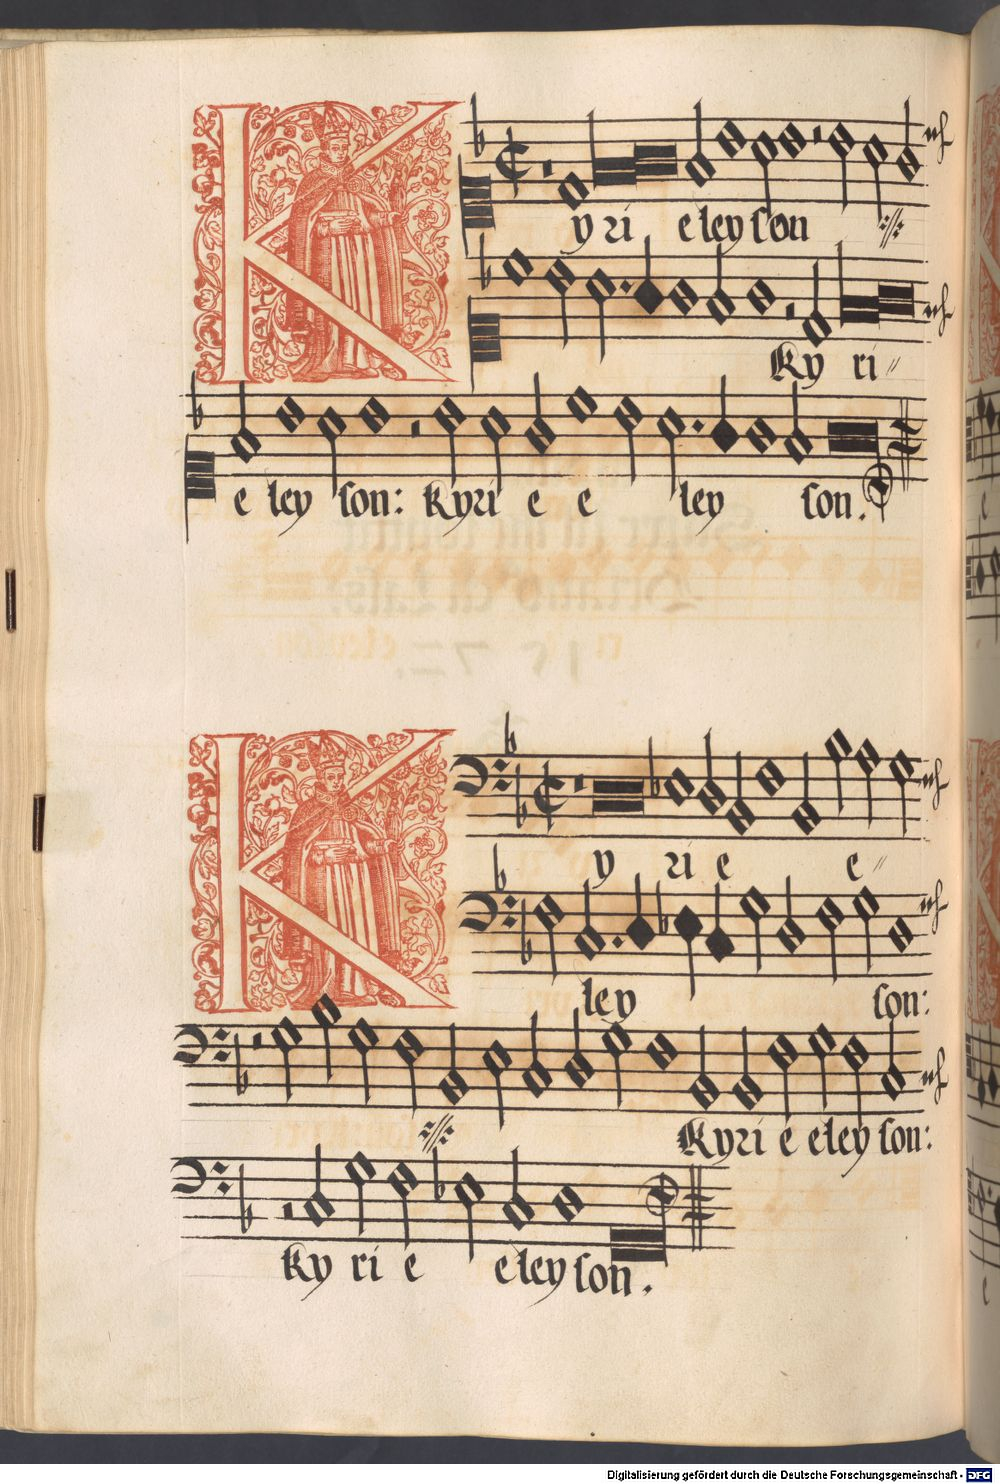 K yri eleyson
Ky ri
e ley son: kyri e e ley son.
K y ri e e
ley son:
Kyri e eley son:
ky ri e eley son.
Digitalisierung gefördert durch die Deutsche Forschungsgemeinschaft - DFG